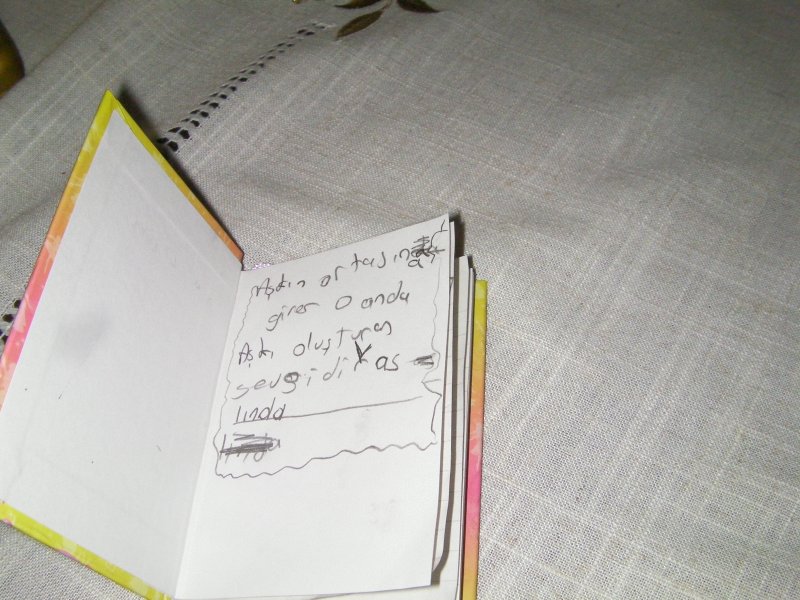 Aşkın ortasında
girer O anda
Aşkı oluşturan
sevgidir as
lında